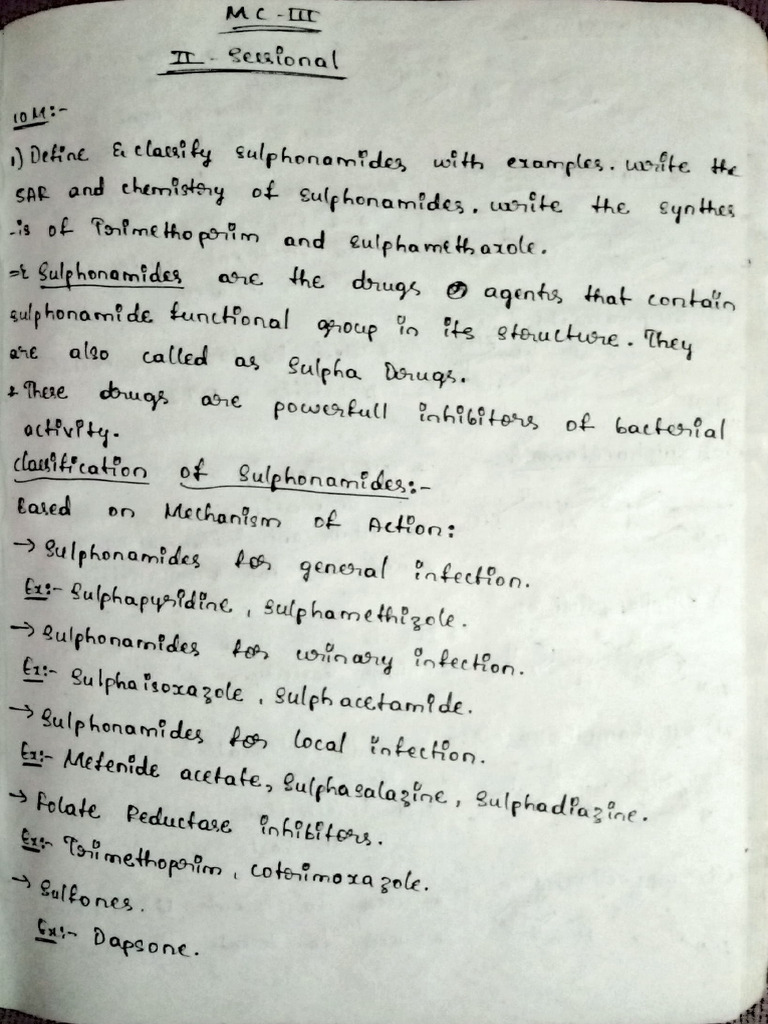 MC - III
II - Sessional
10M:-
1) Define & classify sulphonamides with examples. Write the
SAR and chemistry of sulphonamides. Write the synthes
-is of Trimethoprim and sulphamethaxole.
=> Sulphonamides are the drugs agents that contain
sulphonamide functional group in its structure. They
are also called as Sulpha Drugs.
* These drugs are powerfull inhibitors of bacterial
activity.
Classification of Sulphonamides:-
Based on Mechanism of Action:
→ Sulphonamides for general infection.
Ex:- Sulphapyridine, sulphamethizole.
→ Sulphonamides for urinary infection.
Ex:- Sulphaisoxazole, Sulphacetamide.
→ Sulphonamides for local infection.
Ex:- Mefenide acetate, Sulphasalazine, Sulphadiazine.
→ Folate Reductase inhibitors.
Ex:- Trimethoprim, cotrimoxazole.
→ Sulfones.
Ex:- Dapsone.